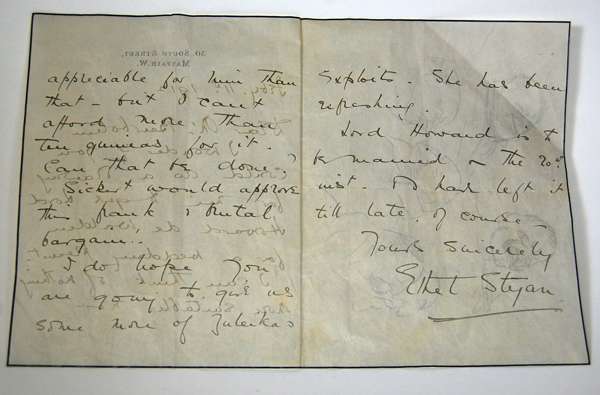 appreciable for him than
that – but I can't
afford more than
ten guineas for it.
Can that be done?
Sickert would approve
this frank & brutal
bargain..
I do hope you
are going to give us
some more of Zuleika's
exploits. She has been
refreshing.
Lord Howard is to
be married on the 20th
inst. I'd had left it
till late, of course
Yours sincerely
Ethel
30, South Street,
Mayfair. W.